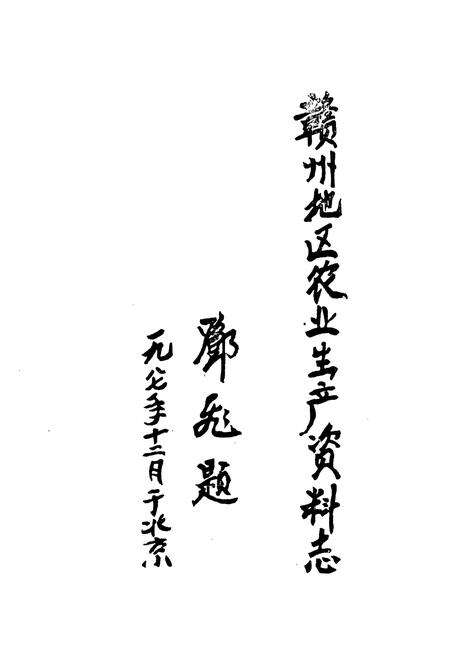 赣州地区农业生产资料志
鄧飛题
一九八七年十二月于北京